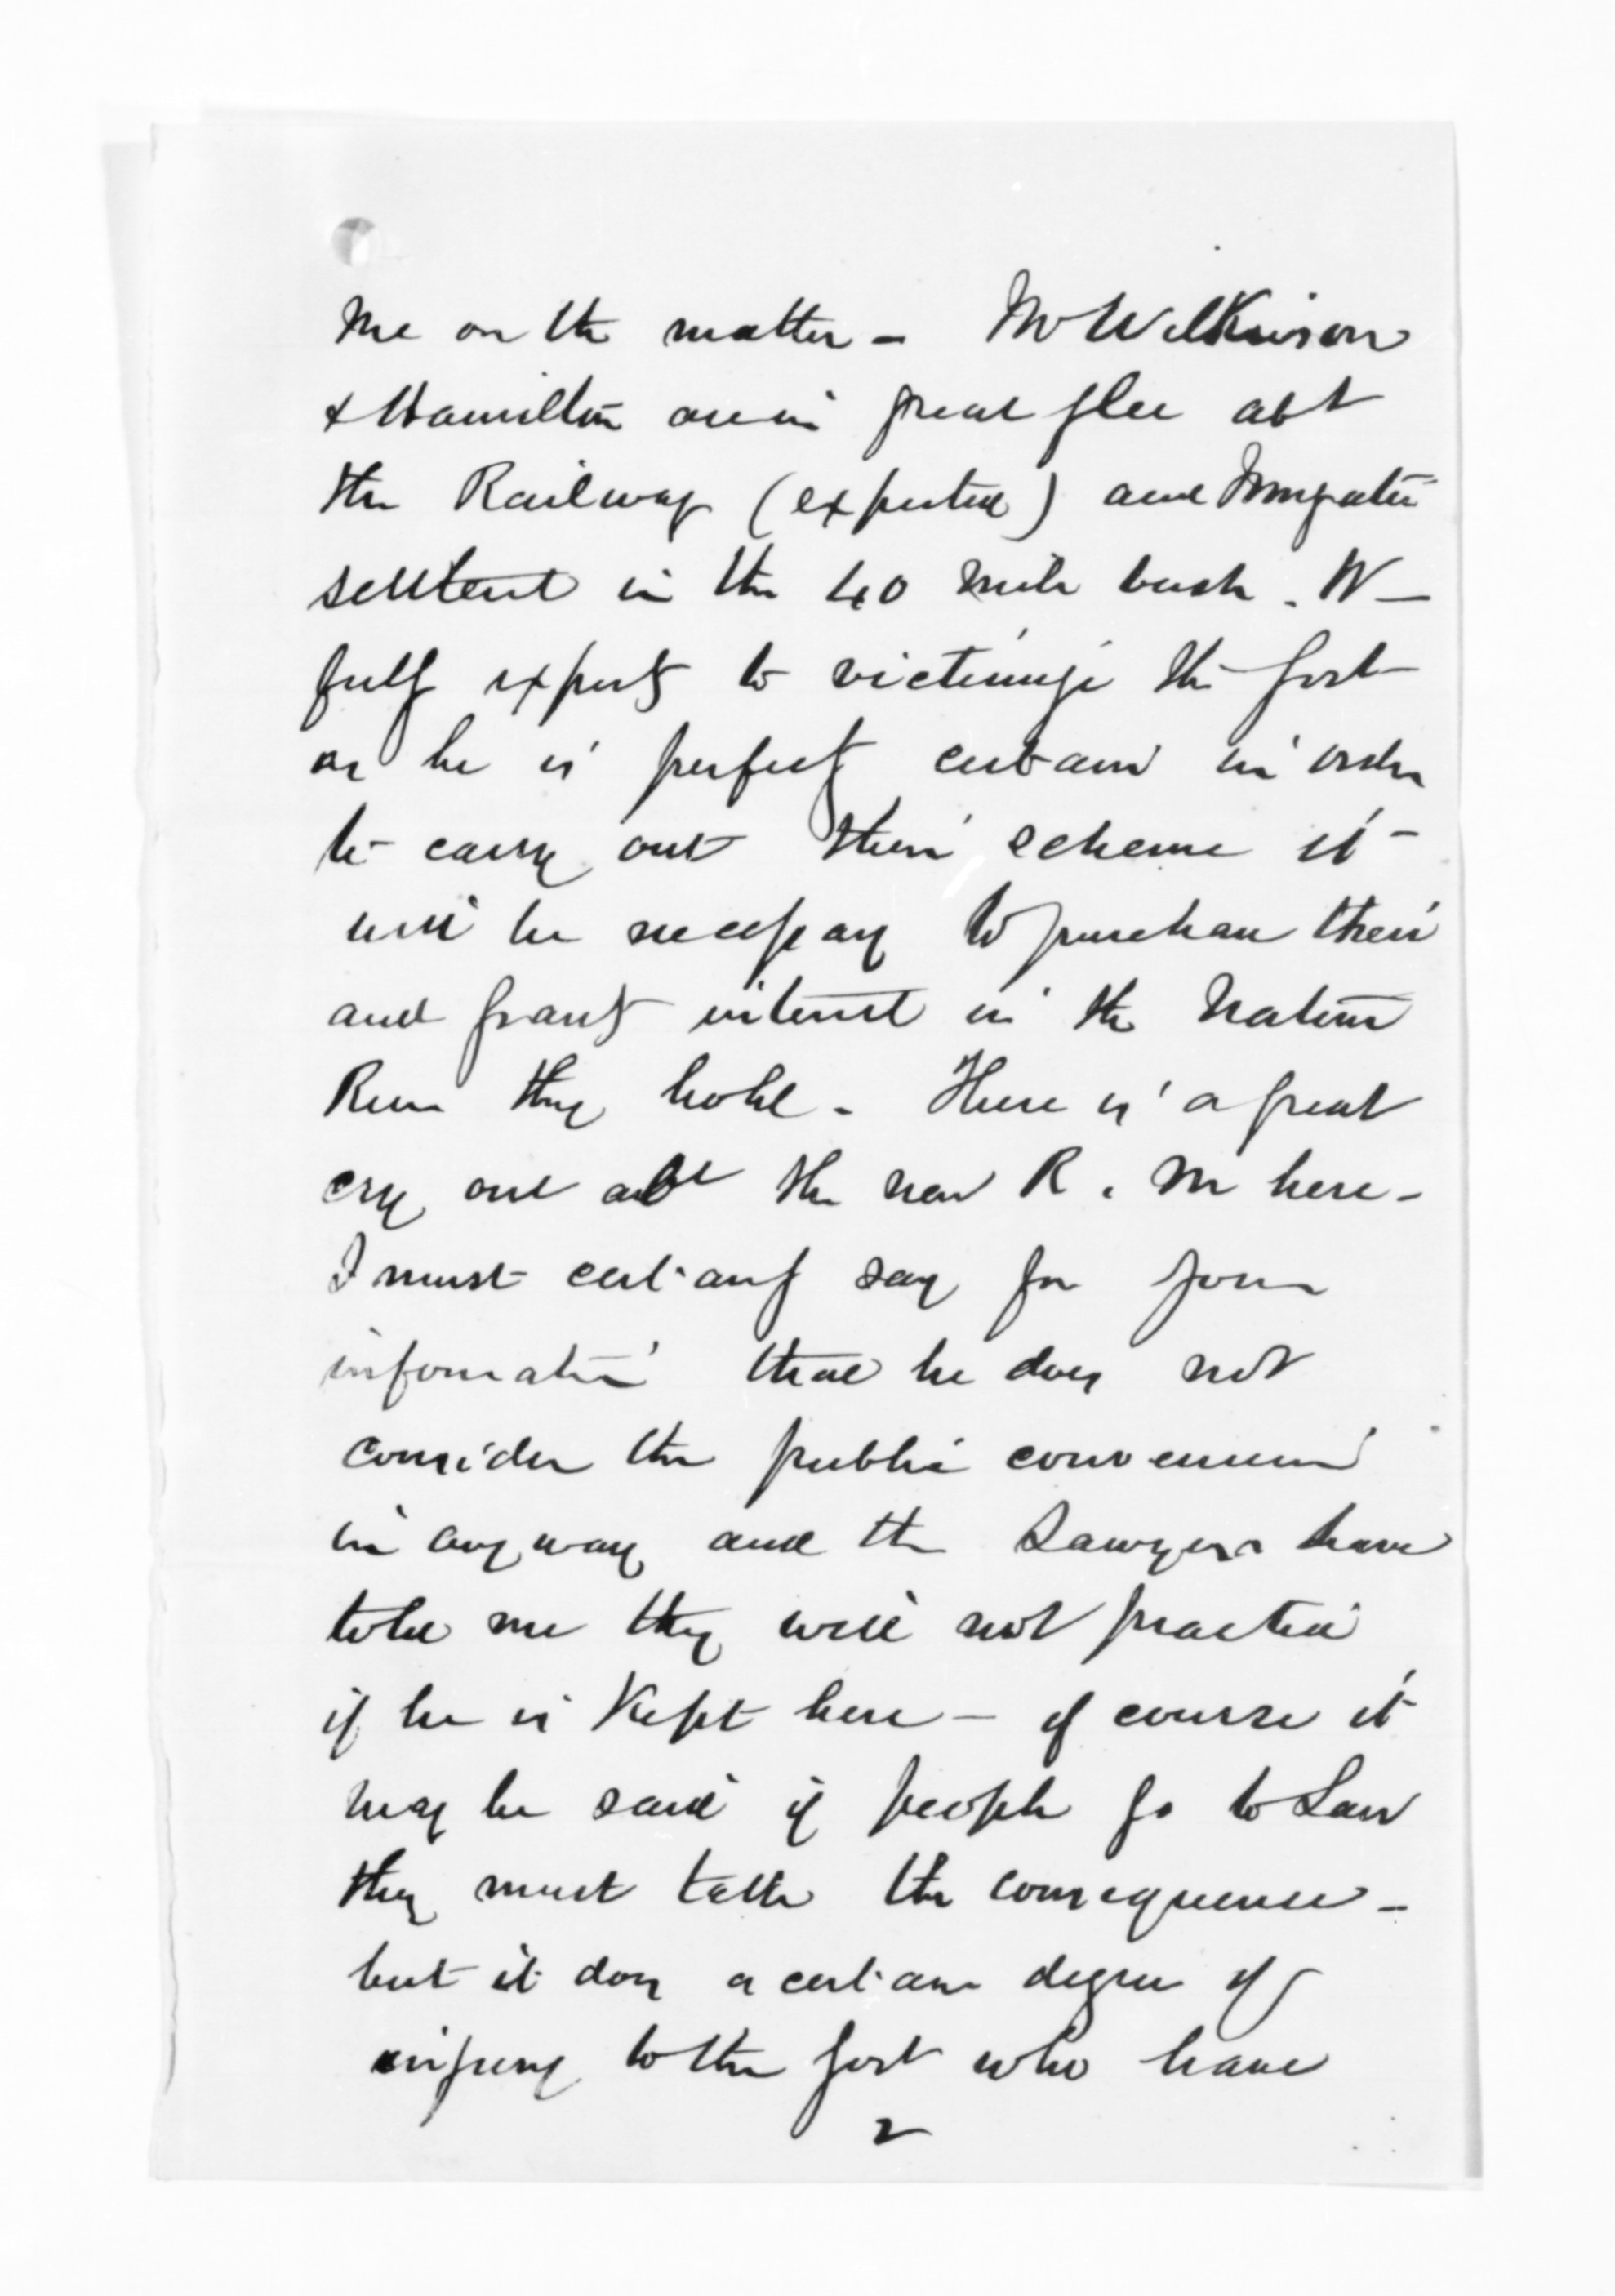 me on the matter - Mr Wilkinson
& Hamilton are in great glee abt
the Railway (expected) and Immgratn
settlent in the 40 mile bush. W -
fully expects to victimize the Govt
as he is perfectly certain in order
to carry out their scheme it
will be necessary to purchase their
and Grants interest in the Native
Run they hold - There is a great
cry out abt the new R. M here -
I must certainly say for your
information that he does not
consider the public convenience
in any way and the Lawyers have
told me they will not practice
if he is Kept here - of course it
may be said if people go to Law
they must take the consequence -
but it does a certain degree of
injury to the Govt who have
2